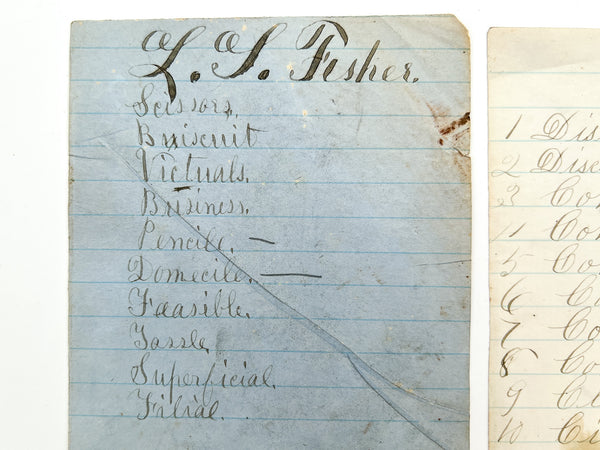 L. S. Fisher.
Scissors.
Bruiscuit
Victuals.
Brusiness.
Pencile. —
Domecile. —
Feasible.
Tassle.
Superficial.
Filial.
1 Dis
2 Dise
3 Con
4 Con
5 Co
6 Co
7 Co
8 Co
9 Cl
10 Ci